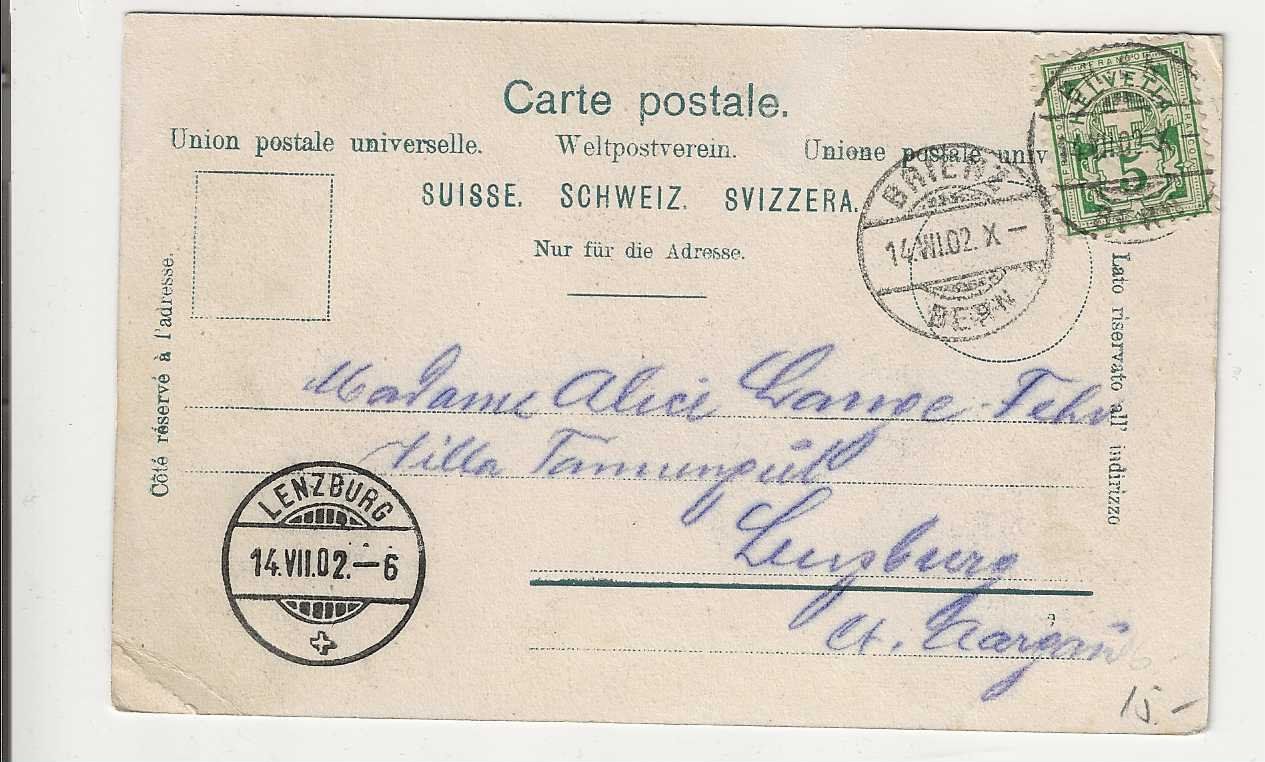 Carte postale.
Union postale universelle. Weltpostverein. Unione postale univ
SUISSE. SCHWEIZ. SVIZZERA.
Nur für die Adresse.
Côté réservé à l'adresse.
Lato riservato all' indirizzo
HELVETIA
FRANCO
5
14.VII.02.X-
BRIENZ
14.VII.02.X-
BERN
Madame Alice Lange-Fehr
Villa
Lenzburg
Ct. Aargau
LENZBURG
14.VII.02.-6
15.-